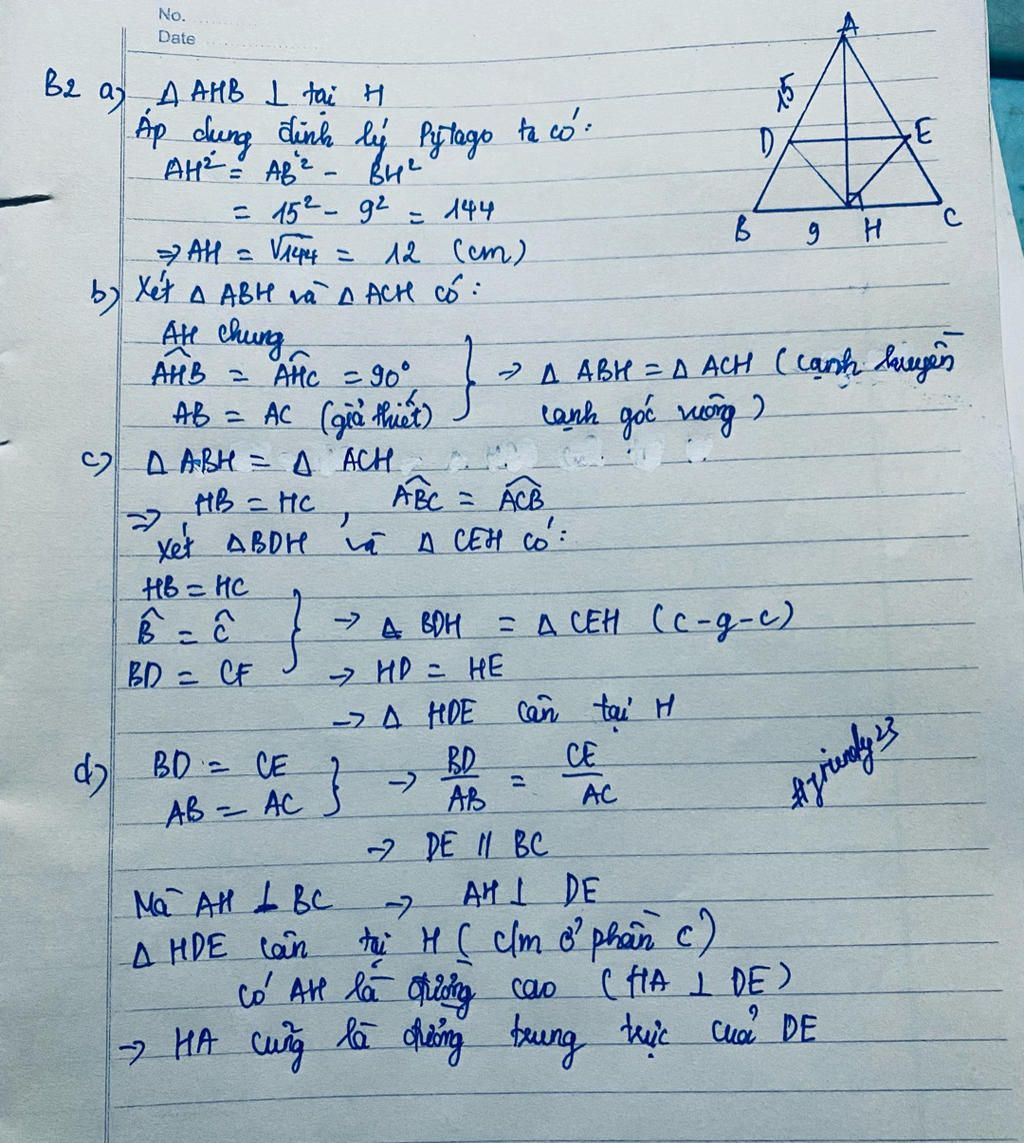 No.
Date
B2 a) Δ AHB ⊥ tại H
Áp dụng định lý Pytago ta có:
AH² = AB² - BH²
= 15² - 9² = 144
⇒ AH = √144 = 12 (cm)
A
15
D
E
B
9
H
C
b) Xét Δ ABH và Δ ACH có:
AH chung
AHB = AHC = 90°
AB = AC (giả thiết)
→ Δ ABH = Δ ACH (cạnh huyền
cạnh góc vuông)
c) Δ ABH = Δ ACH
⇒ HB = HC, ABC = ACB
Xét ΔBDH và Δ CEH có:
HB = HC
B̂ = Ĉ
BD = CE
→ Δ BDH = Δ CEH (c-g-c)
→ HD = HE
→ Δ HDE cân tại H
d) BD = CE
AB = AC
→ BD/AB = CE/AC
→ DE // BC
#friendly23
Mà AH ⊥ BC → AH ⊥ DE
Δ HDE cân tại H (c/m ở phần c)
có AH là đường cao (HA ⊥ DE)
→ HA cũng là đường trung trực của DE